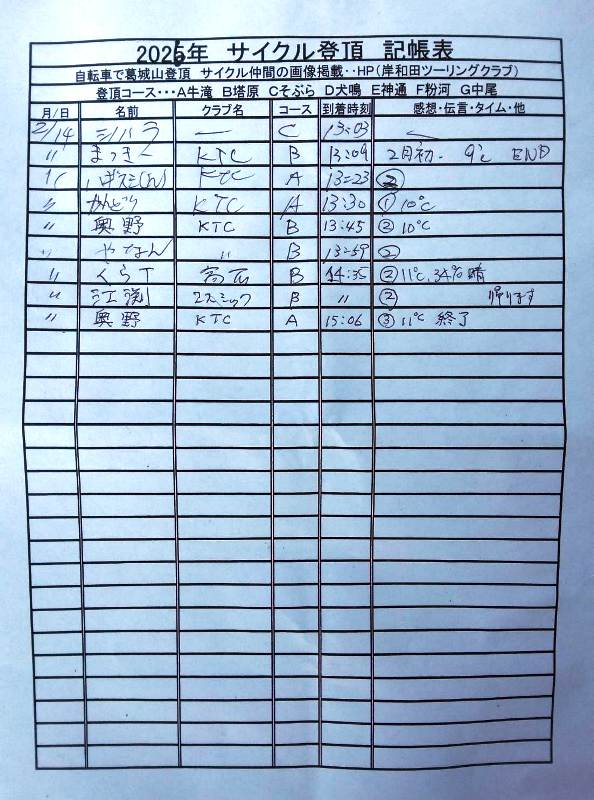 2026年 サイクル登頂 記帳表
自転車で葛城山登頂 サイクル仲間の画像掲載‥HP(岸和田ツーリングクラブ)
登頂コース・・・A牛滝 B塔原 Cそぶら D犬鳴 E神通 F粉河 G中尾
月/日 名前 クラブ名 コース 到着時刻 感想・伝言・タイム・他
2/14 シバラ ー C 13:03
〃 まっきー KTC B 13:09 2月初. 9℃ END
〃 KTC A 13:23 ②
〃 かんどう KTC A 13:30 ① 10℃
〃 奥野 KTC B 13:45 ② 10℃
〃 やなさん 〃 B 13:59 ②
〃 くらT B 14:35 ② 11℃. 34% 晴
〃 B 〃 ② 帰ります
〃 奥野 KTC A 15:06 ③ 11℃ 終了